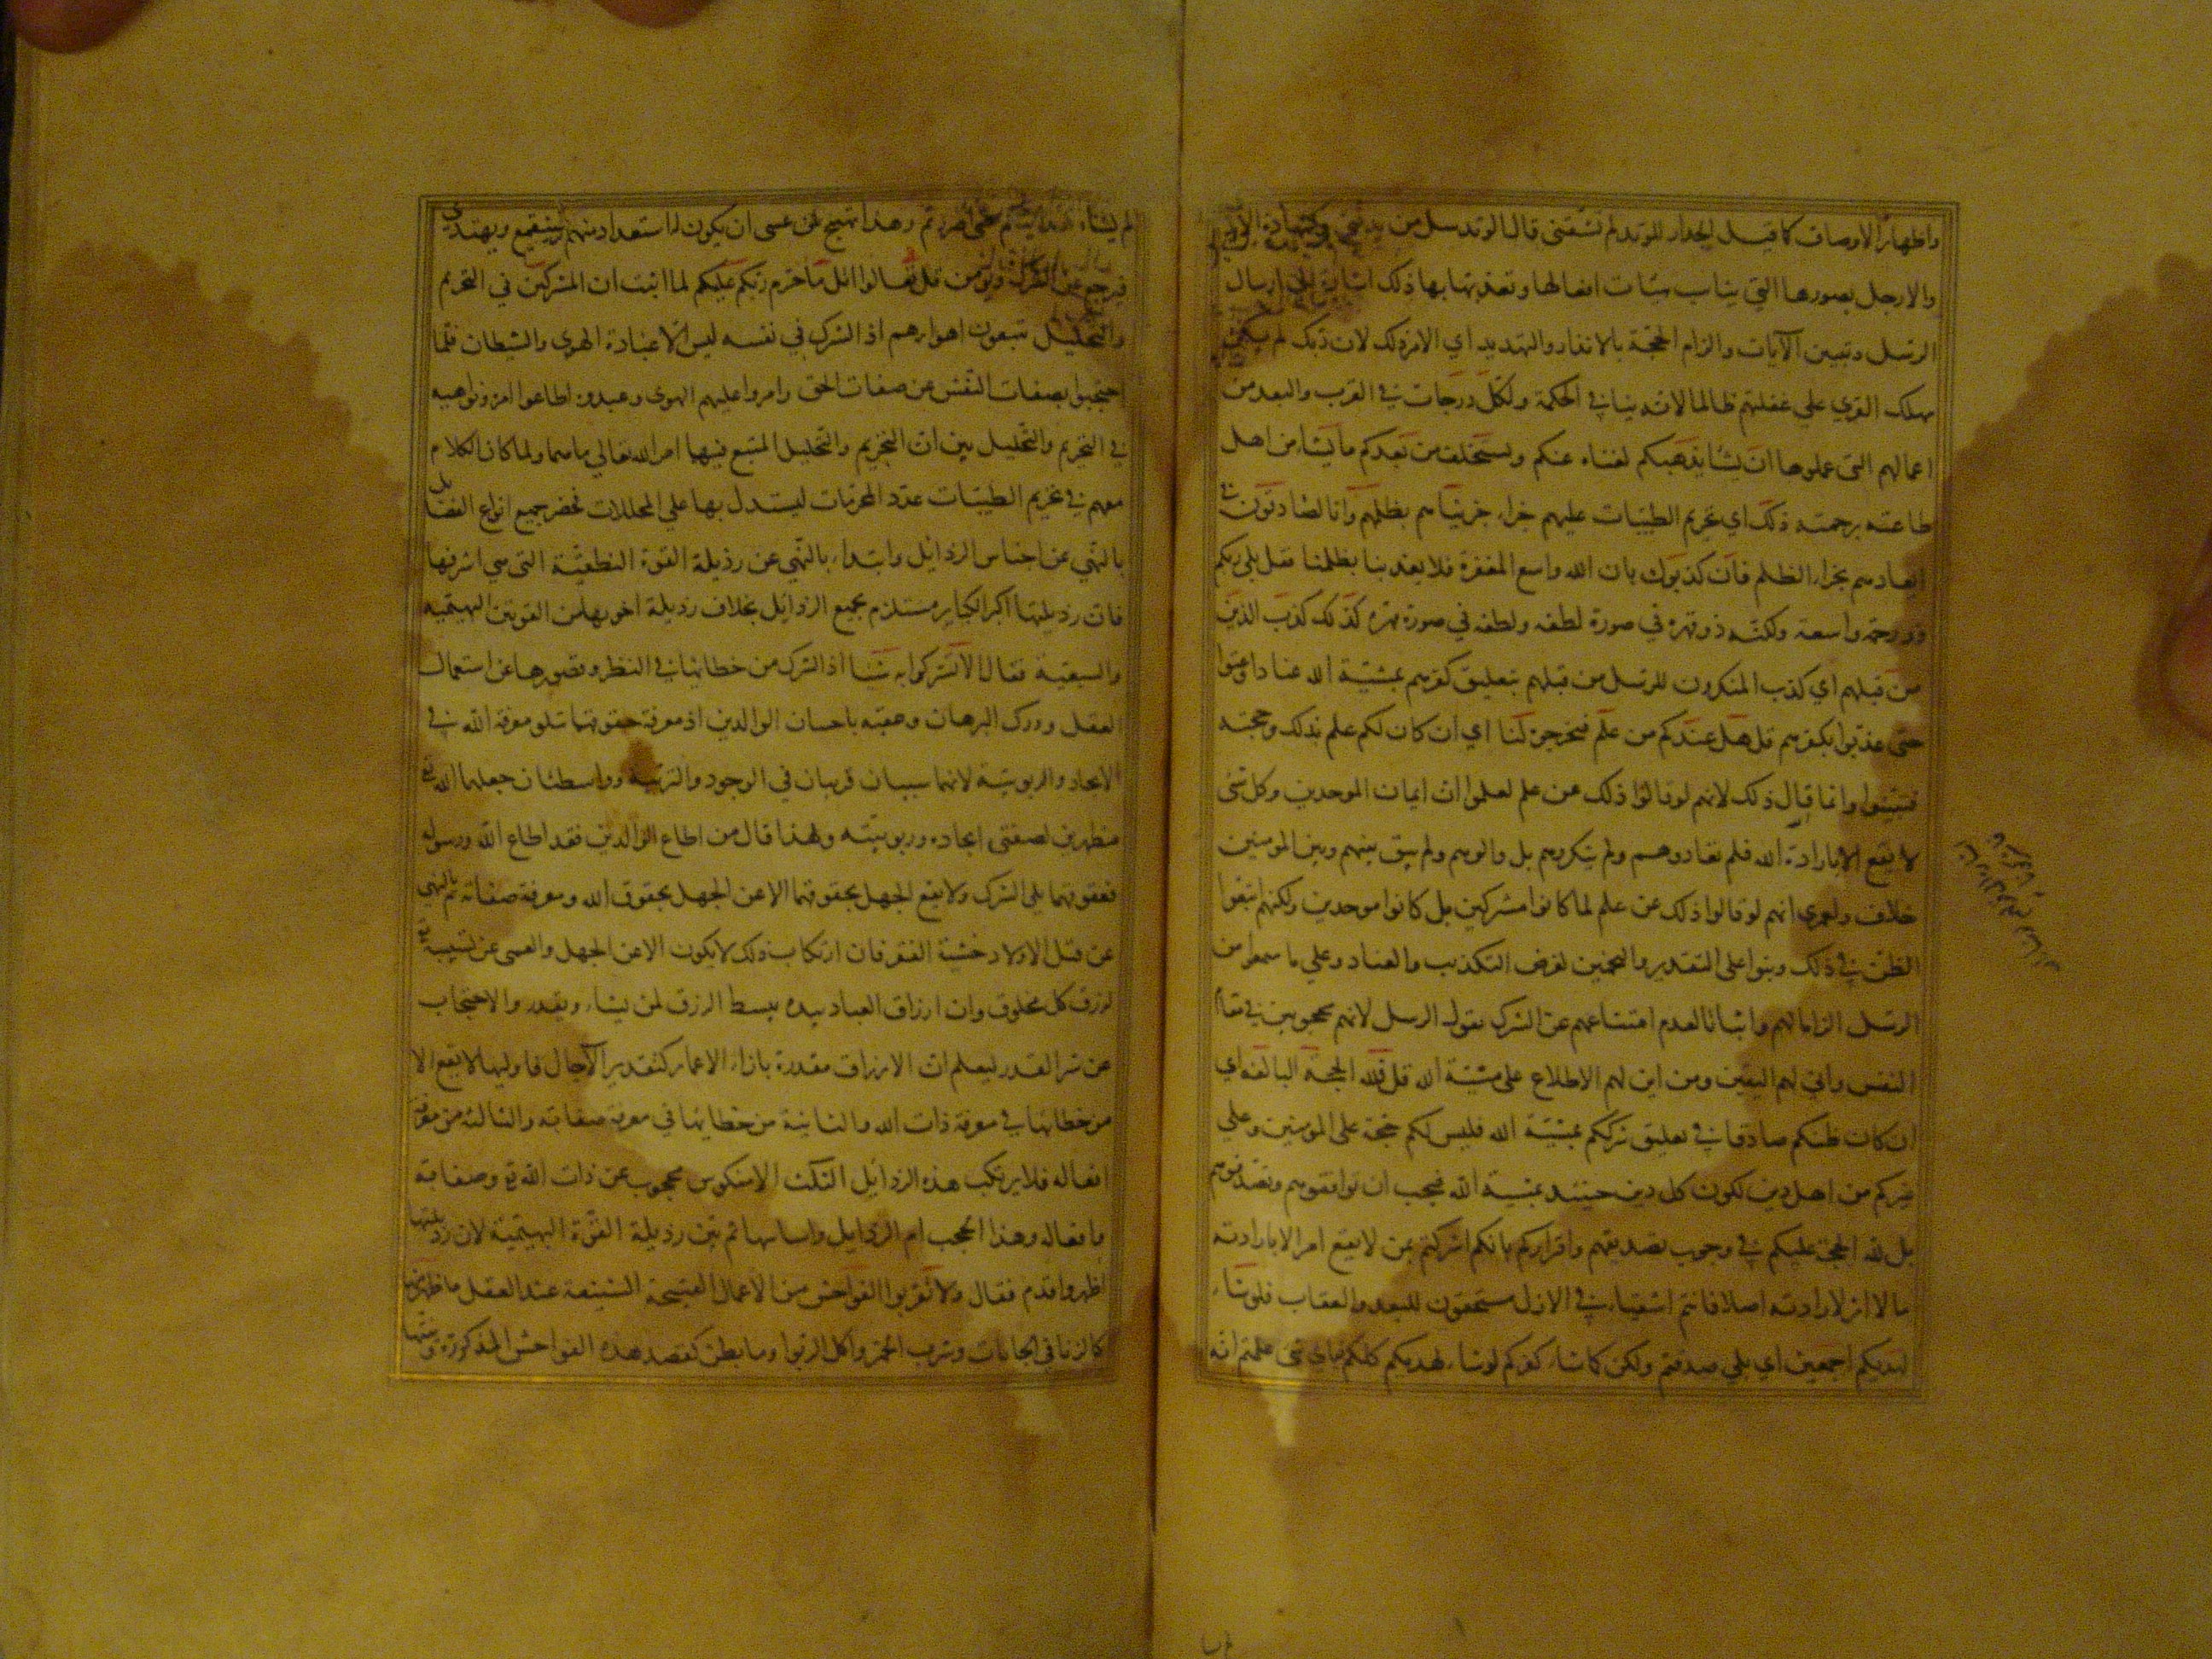 واظهار الاوصاف كما قيل قال الجدار للوتد لم تشقنى قال الوتد سل من يدقنى وكشهادة الايدى
والارجل بصورها التى يناسب هيئات افعالها وتعذيبها بها ذلك اشارة الى ارسال
الرسل وتبيين الآيات والزام الحجة بالانذار والتهديد اى الامر ذلك لان ربك لم يكن
مهلك القرى على غفلتهم ظالما لانه ينافى الحكمة ولكل درجات فى القرب والبعد من
اعمالهم التى عملوها ان يشا يذهبكم لفناه عنكم ويستخلف من بعدكم ما يشاء من اهل
طاعته برحمته ذلك اى تحريم الطيبات عليهم جزاء جزيناهم بظلمهم وانا لصادقون فى
ايعادهم بجزاء الظلم فان كذبوك بان الله واسع المغفرة فلا يعذبنا بظلمنا فقل بلى ربكم
ذو رحمة واسعة ولكنه ذو قهر فى صورة لطفه ولطفه فى صورة قهره كذلك كذب الذين
من قبلهم اى كذب المنكرون للرسل من قبلهم بتعليق كفرهم بمشيئة الله عنادا وعتوا
حتى عذبوا بكفرهم قل هل عندكم من علم فتخرجوه لنا اى ان كان لكم علم بذلك وحجة
فبينوا وانما قال ذلك لانهم لو قالوا ذلك عن علم لعلموا ان ايمان الموحدين وكل شئ
لا يقع الا بارادة الله فلم تعادوهم ولم ينكروهم بل والوهم ولم يبق بينهم وبين المومنين
خلاف ولعمرى انهم لو قالوا ذلك عن علم لما كانوا مشركين بل كانوا موحدين ولكنهم اتبعوا
الظن فى ذلك وبنوا على التقدير والتخمين لغرض التكذيب والعناد وعلى ما سمعوا من
الرسل الزاما لهم واثباتا لعدم امتناعهم عن الشرك بقول الرسل لانهم محجوبين فى مقام
النفس وانى لهم اليقين ومن اين لهم الاطلاع على مشيئة الله قل فلله الحجة البالغة اى
ان كان ظنكم صادقا فى تعليق شرككم بمشيئة الله فليس لكم حجة على المومنين وعلى
غيركم من اهل دين لكون كل دين حينئذ بمشيئة الله فيجب ان توافقوهم وتصدقوهم
بل لله الحجة عليكم فى وجوب تصديقهم واقراركم بانكم اشركتم بمن لا يقع امر الا بارادته
ما لا اثر لارادته اصلا فانتم اشقياء فى الازل مستحقون للبعد والعقاب فلو شاء
لهديكم اجمعين اى بلى صدقتم ولكن كما شاء كفركم لو شاء لهديكم كلكم فباى شئ علمتم انه
لم يشاء وهذا تهييج لمن عسى ان يكون له استعداد منهم فينقمع ويهتدى
فيرجع عن الشرك ويؤمن قل تعالوا اتل ما حرم ربكم عليكم لما اثبت ان المشركين فى التحريم
والتحليل يتبعون اهواءهم اذ الشرك فى نفسه ليس الا عبادة الهوى والشيطان فلما
احتجبوا بصفات النفس عن صفات الحق وامروا عليهم الهوى وعبدوه اطاعوا امره ونواهيه
فى التحريم والتحليل بين ان التحريم والتحليل المتبع فيهما امر الله تعالى ما هما ولما كان الكلام
معهم فى تحريم الطيبات عدد المحرمات ليستدل بها على المحللات فحصر جميع انواع الفضايل
بالنهى عن اجناس الرذايل وابتداء بالنهى عن رذيلة القوة النطقية التى هى اشرفها
فان رذيلتها اكبر الكباير مستلزم بجميع الرذايل بخلاف رذيلة اخويها من القوتين البهيمية
والسبعية فقال الا تشركوا به شيئا اذ الشرك من خطائها فى النظر وقصورها عن استعمال
العقل ودرك البرهان وعقبه باحسان الوالدين اذ معرفة حقوقهما تتلو معرفة الله فى
الايجاد والربوبية لانهما سببان قريبان فى الوجود والتربية وواسطتان جعلهما الله
مظهرين لصفتى ايجاده وربوبيته ولهذا قال من اطاع الوالدين فقد اطاع الله ورسوله
فعقوقهما يلى الشرك ولا يقع الجهل بحقوقهما الا عن الجهل بحقوق الله ومعرفة صفاته ثم بالنهى
عن قتل الاولاد خشية الفقر فان ارتكاب ذلك لا يكون الا عن الجهل والعمى عن تسبيبه
لرزق كل مخلوق وان ارزاق العباد بيده يبسط الرزق لمن يشاء ويقدر والاحتجاب
عن سر القدر ليعلم ان الارزاق مقدرة بازاء الاعمار كتقدير الآجال فاوليها لا يقع الا
من خطائها فى معرفة ذات الله والثانية من خطائها فى معرفة صفاته والثالثة من معرفة
افعاله فلا يرتكب هذه الرذايل الثلث الا منكوس محجوب عن ذات الله وصفاته
وافعاله وهذا الحجب ام الرذايل واساسها ثم بين رذيلة القوة البهيمية لان رذيلتها
اظهر واقدم فقال ولا تقربوا الفواحش من الاعمال القبيحة الشنيعة عند العقل ما ظهر منها
كالزنا فى الحانات وشرب الخمر واكل الربوا وما بطن كقصد هذه الفواحش المذكورة